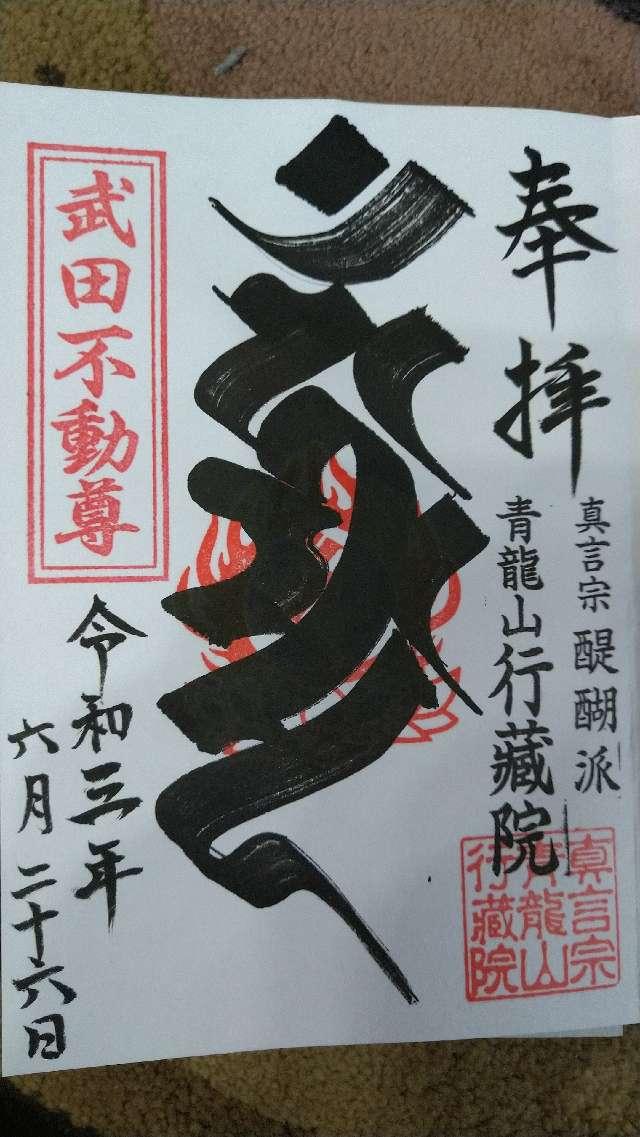 奉拝
真言宗 醍醐派
青龍山行藏院
真言宗
青龍山
行藏院
武田不動尊
令和三年
六月二十六日